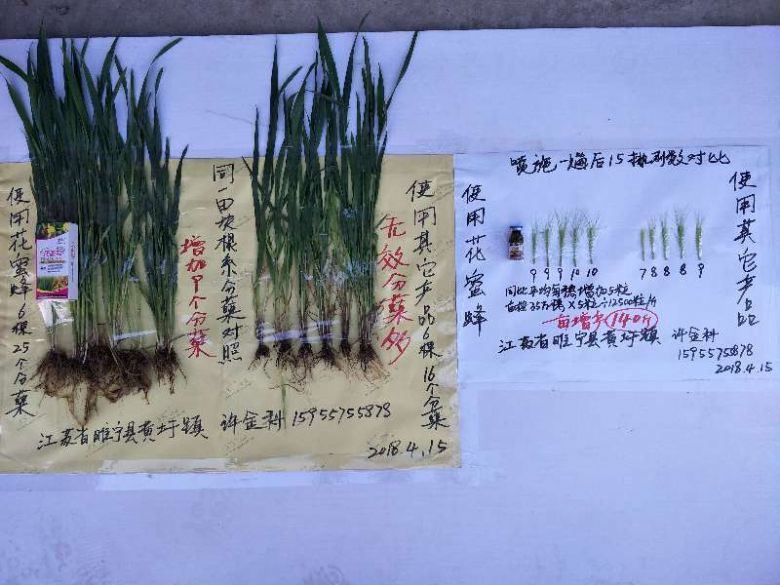 使用花蜜蜂6棵25个分蘖
增加9个分蘖
同一田块根系分蘖对照
无效分蘖多
使用其它产品6棵16个分蘖
江苏省睢宁县黄圩镇 许金科 15955755878
2018.4.15
喷施一遍后15排列数对比
使用花蜜蜂
9 9 9 10 10
7 8 8 8 9
使用其它产品
同比平均每穗增加5粒
一亩增多140斤
江苏省睢宁县黄圩镇 许金科
15955755878
2018.4.15